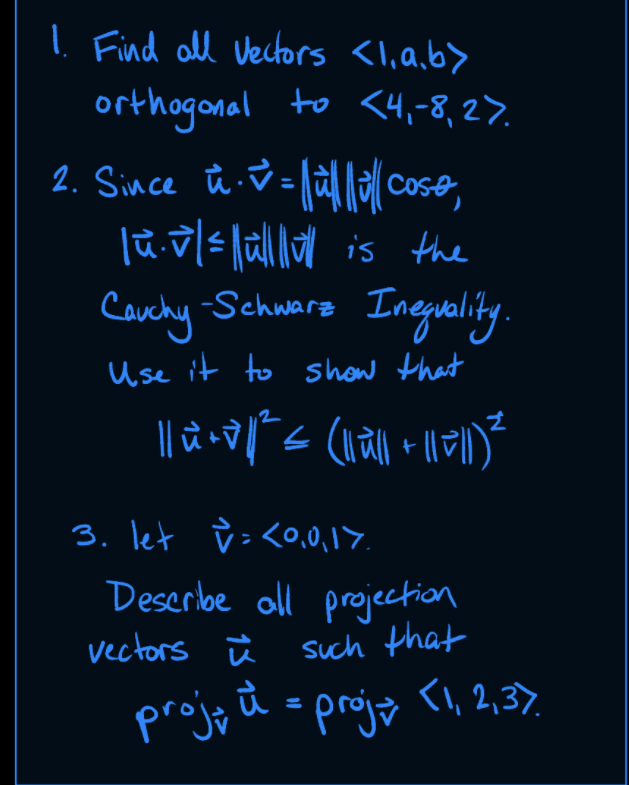 1. Find all vectors <1,a,b>
orthogonal to <4,-8,2>.
2. Since u⃗·v⃗ = ||u⃗|| ||v⃗|| cosθ,
|u⃗·v⃗| ≤ ||u⃗|| ||v⃗|| is the
Cauchy-Schwarz Inequality.
Use it to show that
||u⃗+v⃗||² ≤ (||u⃗|| + ||v⃗||)²
3. let v⃗ = <0,0,1>.
Describe all projection
vectors u⃗ such that
proj_v⃗ u⃗ = proj_v⃗ <1,2,3>.